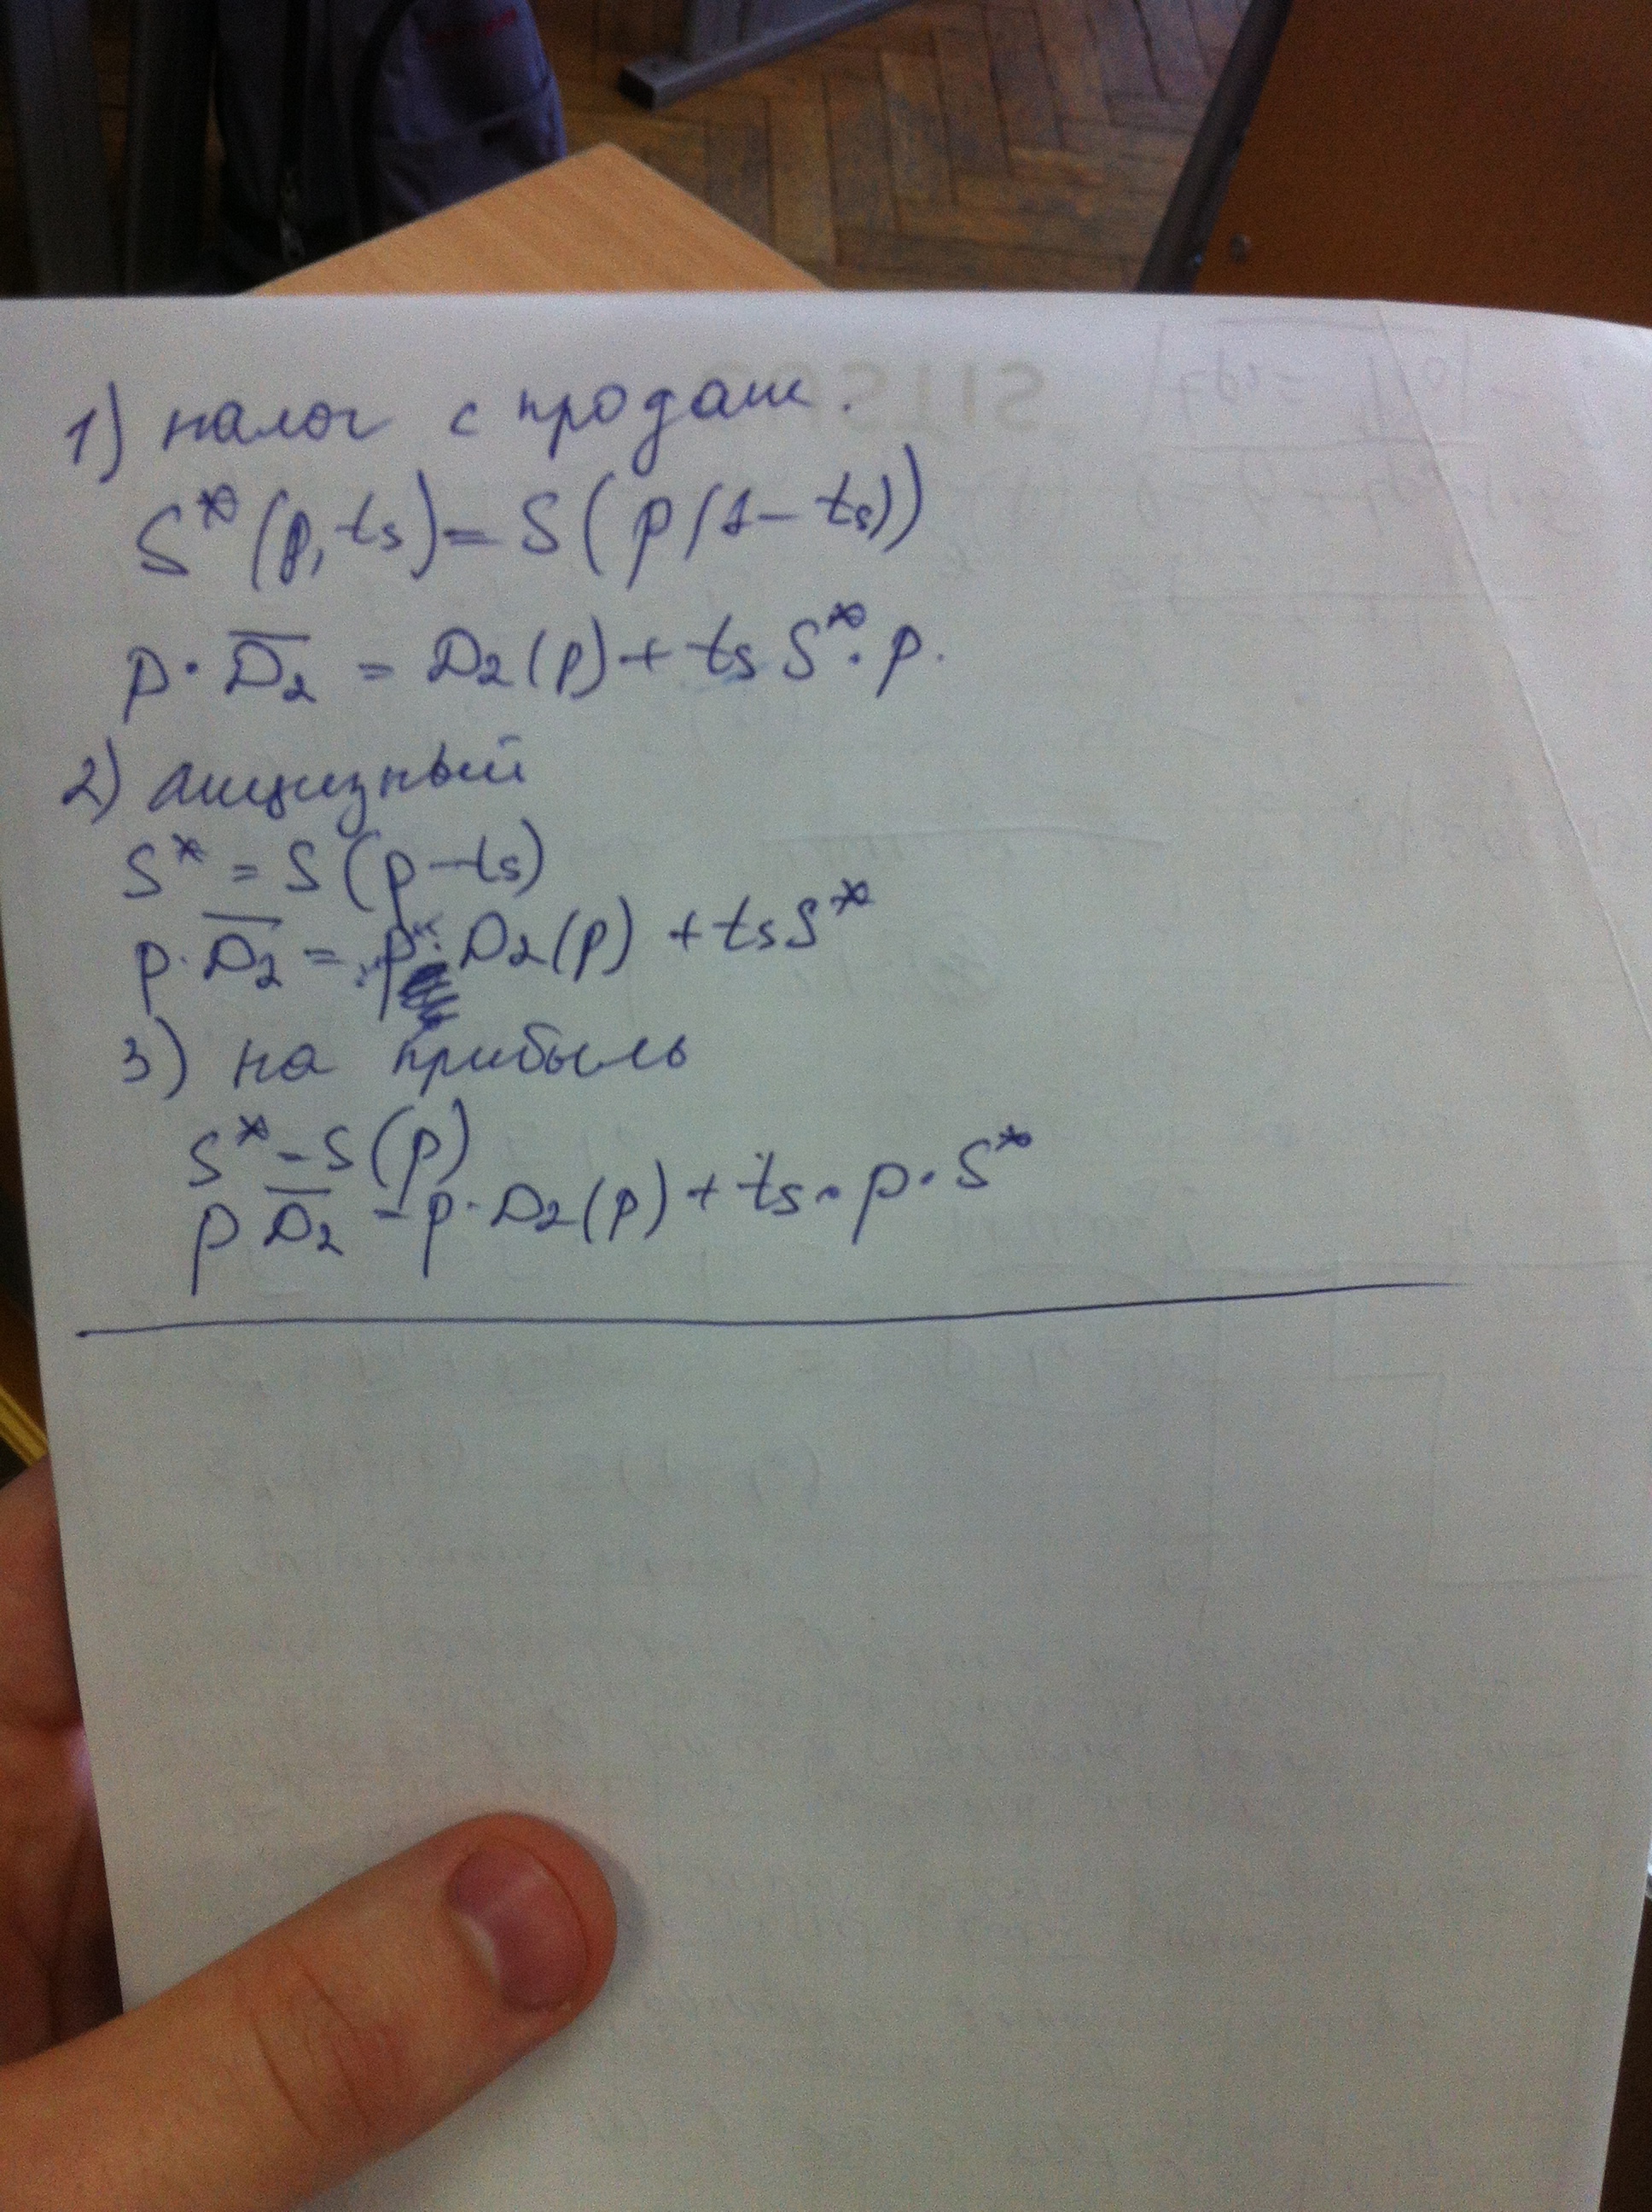 1) налог с продаж.
S*(p, ts) = S(p(1-ts))
p·D̅₂ = D₂(p) + ts S*·p.
2) акцизный
S* = S(p-ts)
p·D̅₂ = p·D₂(p) + ts S*
3) на прибыль
S* = S(p)
p D̅₂ = p·D₂(p) + ts·p·S*